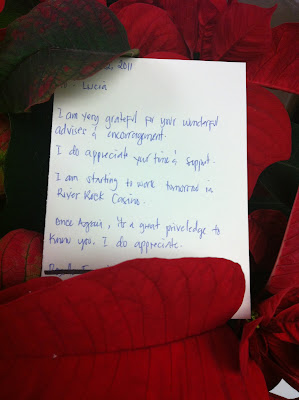 2, 2011
Lucia
I am very grateful for your wonderful
advises & encorragement.
I do appreciate your time & support.
I am starting to work tomorrow in
River Rock Casino.
Once Again, its a great priveledge to
know you. I do appreciate.